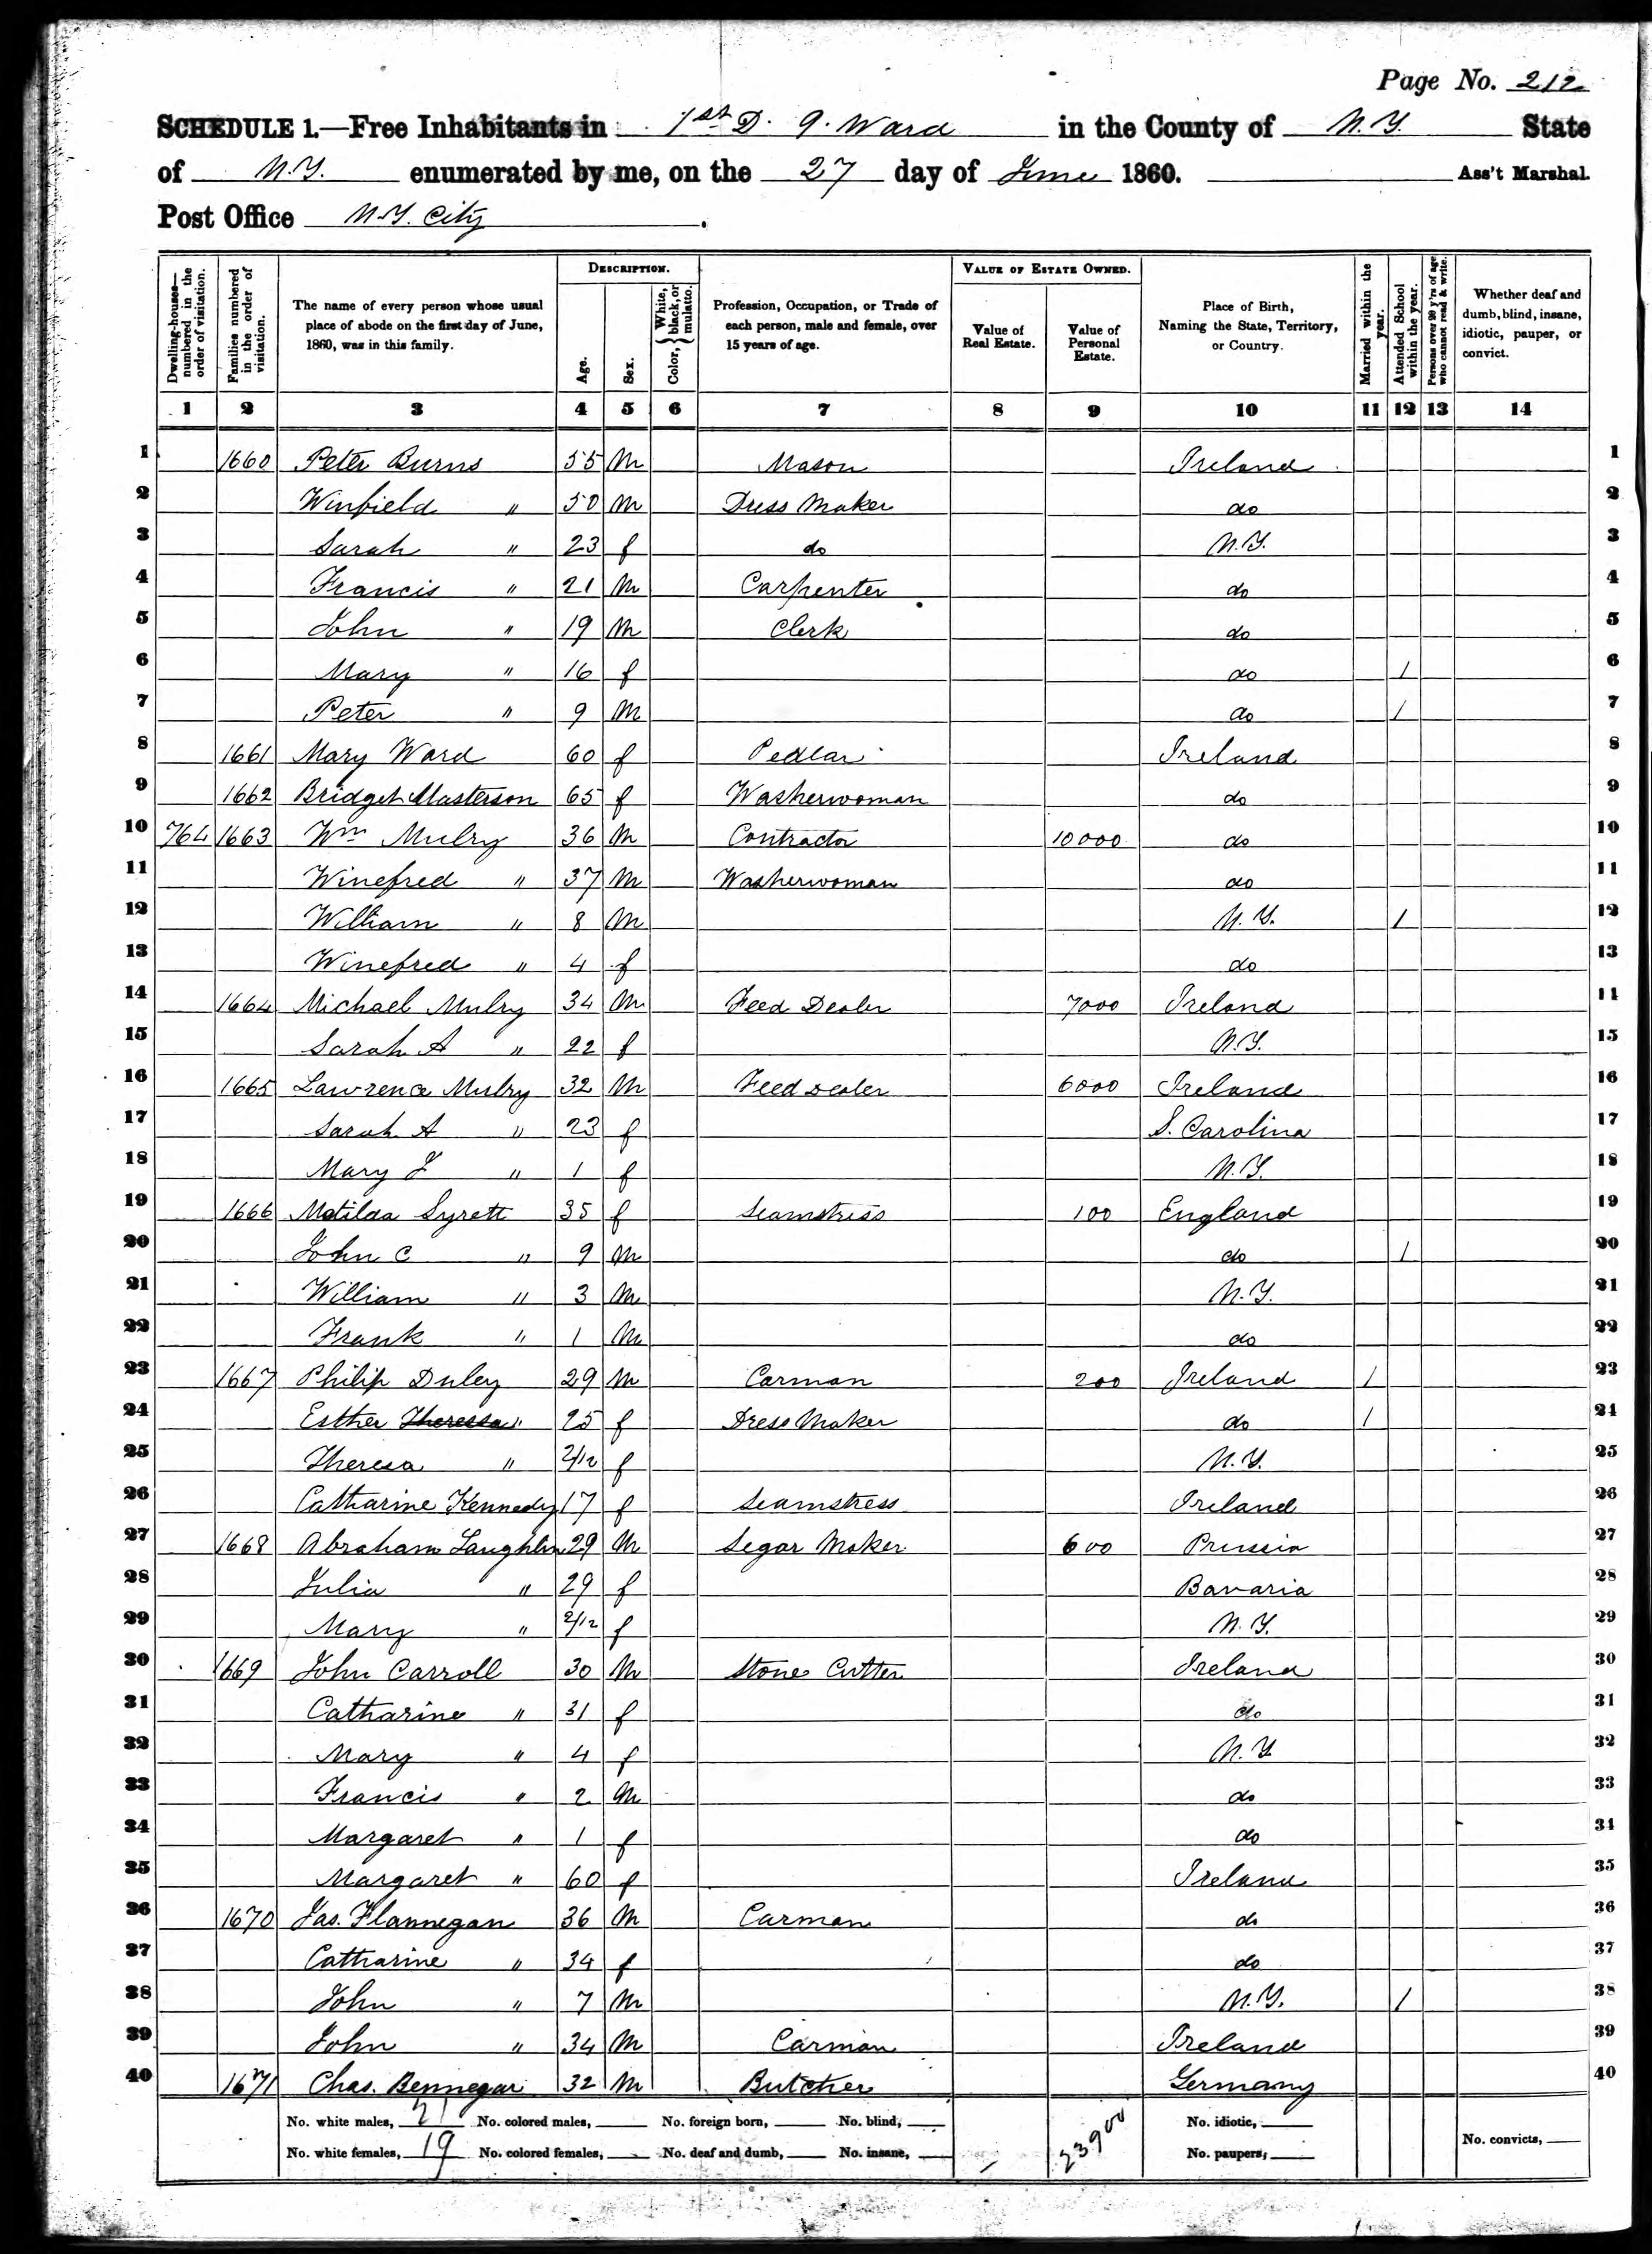 Page No. 212
SCHEDULE 1.—Free Inhabitants in 1st D. 9. Ward in the County of N.Y. State
of N.Y. enumerated by me, on the 27 day of June 1860. Ass't Marshal.
Post Office N.Y. City.
Dwelling-houses—numbered in the order of visitation.
Families numbered in the order of visitation.
The name of every person whose usual place of abode on the first day of June, 1860, was in this family.
DESCRIPTION.
Age.
Sex.
Color, { White, black, or mulatto.
Profession, Occupation, or Trade of each person, male and female, over 15 years of age.
VALUE OF ESTATE OWNED.
Value of Real Estate.
Value of Personal Estate.
Place of Birth, Naming the State, Territory, or Country.
Married within the year.
Attended School within the year.
Persons over 20 y'rs of age who cannot read & write.
Whether deaf and dumb, blind, insane, idiotic, pauper, or convict.
1 2 3 4 5 6 7 8 9 10 11 12 13 14
1 1660 Peter Burns 55 M Mason Ireland 1
2 Winfield " 50 M Dress Maker do 2
3 Sarah " 23 f do N.Y. 3
4 Francis " 21 M Carpenter do 4
5 John " 19 M Clerk do 5
6 Mary " 16 f do / 6
7 Peter " 9 M do / 7
8 1661 Mary Ward 60 f Pedlar Ireland 8
9 1662 Bridget Masterson 65 f Washerwoman do 9
10 764 1663 Wm Mulry 36 M Contractor 10000 do 10
11 Winefred " 37 M Washerwoman do 11
12 William " 8 M N.Y. / 12
13 Winefred " 4 f do 13
14 1664 Michael Mulry 34 M Feed Dealer 7000 Ireland 14
15 Sarah A " 22 f N.Y. 15
16 1665 Lawrence Mulry 32 M Feed Dealer 6000 Ireland 16
17 Sarah A " 23 f S. Carolina 17
18 Mary J " 1 f N.Y. 18
19 1666 Matilda Syrett 35 f Seamstress 100 England 19
20 John C " 9 M do / 20
21 William " 3 M N.Y. 21
22 Frank " 1 M do 22
23 1667 Philip Duley 29 M Carman 200 Ireland / 23
24 Esther Theressa " 25 f Dress Maker do / 24
25 Theresa " 2/12 f N.Y. 25
26 Catharine Kennedy 17 f Seamstress Ireland 26
27 1668 Abraham Laughlin 29 M Segar Maker 600 Prussia 27
28 Julia " 29 f Bavaria 28
29 Mary " 2/12 f N.Y. 29
30 1669 John Carroll 30 M Stone Cutter Ireland 30
31 Catharine " 31 f do 31
32 Mary " 4 f N.Y. 32
33 Francis " 2 M do 33
34 Margaret " 1 f do 34
35 Margaret " 60 f Ireland 35
36 1670 Jas. Flannegan 36 M Carman do 36
37 Catharine " 34 f do 37
38 John " 7 M N.Y. / 38
39 John " 34 M Carman Ireland 39
40 1671 Chas. Bennegar 32 M Butcher Germany 40
No. white males, 21 No. colored males, No. foreign born, No. blind, 23900 No. idiotic,
No. white females, 19 No. colored females, No. deaf and dumb, No. insane, No. paupers, No. convicts,